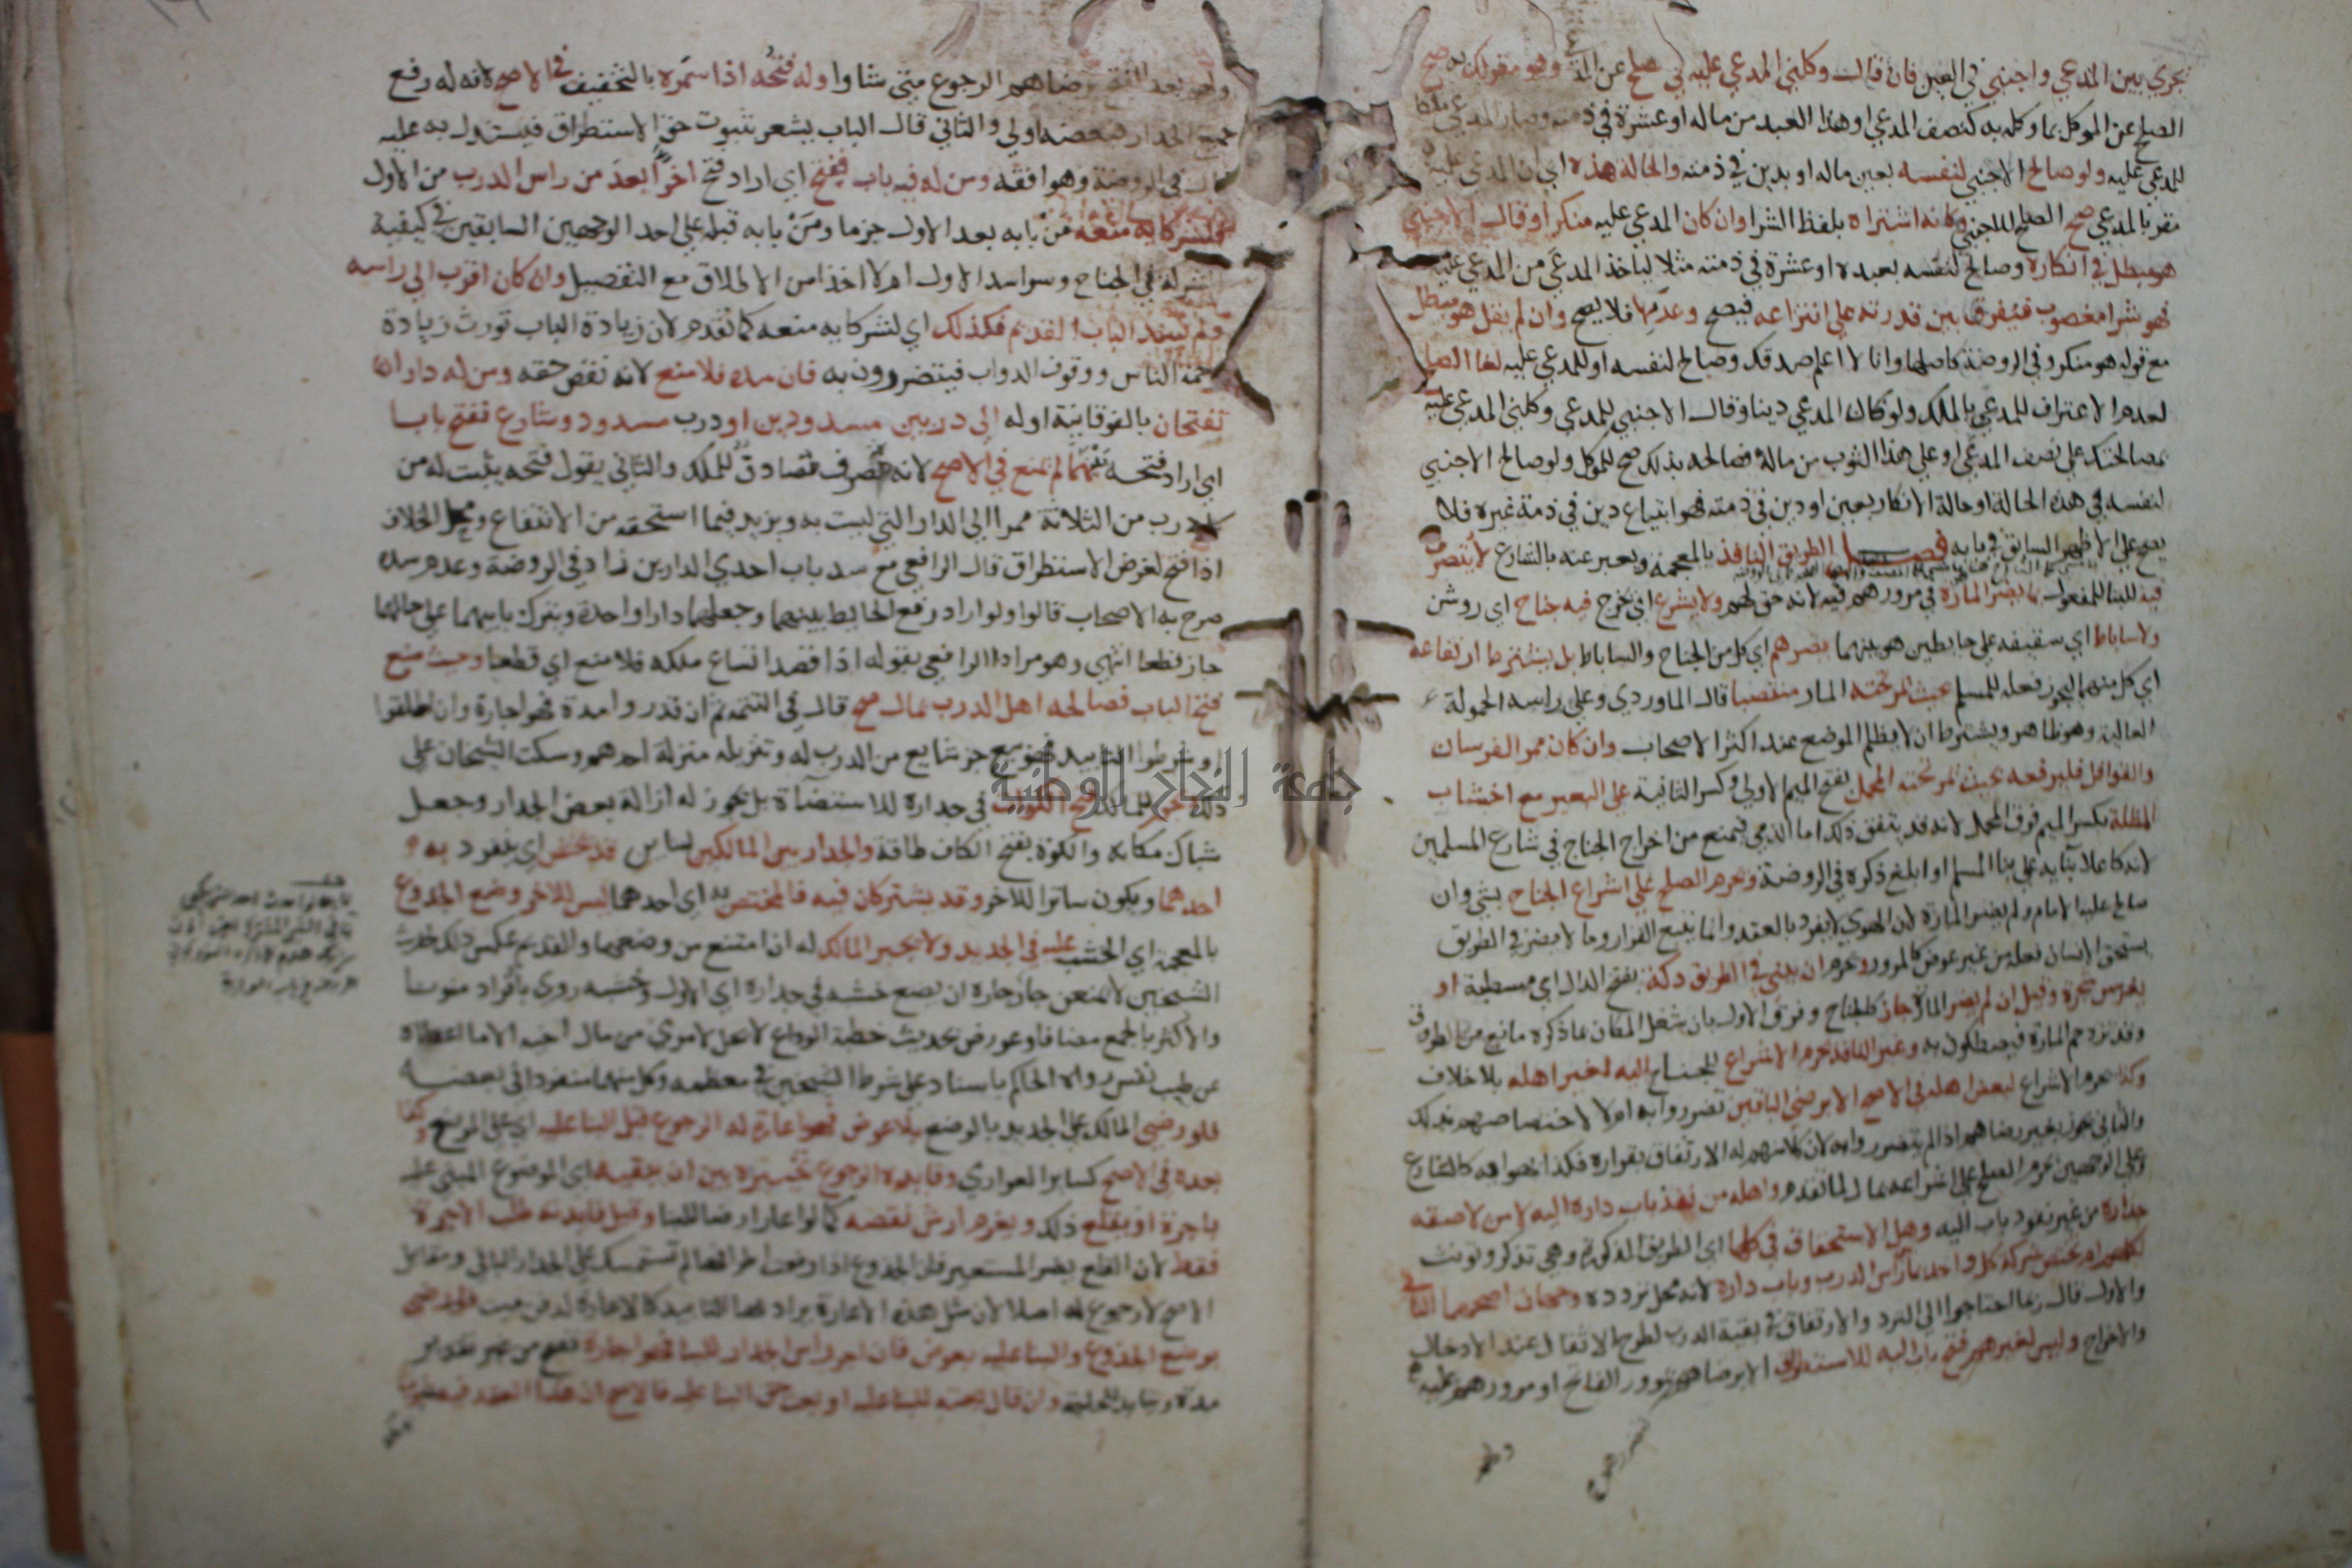 يجري بين المدعي واجنبي في العين فان قال وكلني المدعي عليه في الصلح عن المد وهو مقر لك به صح
الصلح عن الموكل بما وكله به كنصف المدعي او هذا العبد من ماله او عشرة في ذمته وصار المدعي ملكا
للمدعي عليه ولو صالح الاجنبي لنفسه بعين ماله او بدين في ذمته والحالة هذه اي ان المدعي عليه
مقر بالمدعي صح الصلح للاجنبي وكانه اشتراه بلفظ الشرا وان كان المدعي عليه منكرا وقال الاجنبي
هو مبطل في انكاره وصالح لنفسه بعبده او عشرة في ذمته مثلا لياخذ المدعي من المدعي عليه
فهو شرا مغصوب فيفرق بين قدرته على انتزاعه فيصح وعدمها فلا يصح وان لم يقل هو مبطل
مع قوله هو منكر وفي الروضة كاصلها وانا لا اعلم صدقك وصالح لنفسه او للمدعي عليه لغا الصلح
لعدم الاعتراف للمدعي بالملك ولو كان المدعي دينا وقال الاجنبي للمدعي وكلني المدعي عليه
بمصالحتك على نصف المدعي او على هذا الثوب من ماله فصالحه بذلك صح للموكل ولو صالح الاجنبي
لنفسه في هذه الحالة او حالة الانكار بعين او دين في ذمته فهو ابتياع دين في ذمة غيره فلا
يصح على الاظهر السابق في بابه فصل الطريق النافذ بالمعجمة ويعبر عنه بالشارع لا يتصرف
فيه للبنا للمفعول بما يضر المارة في مرورهم فيه لانه حق لهم ولا يشرع اي يخرج فيه جناح اي روشن
ولا ساباط اي سقيفه على حايطين هو بينهما يضرهم اي كل من الجناح والساباط بل يشترط ارتفاعه
اي كل منهما ليجوز فعله للمسلم بحيث يمر تحته المار منتصبا قال الماوردي وعلى راسه الحمولة
العالية وهو ظاهر ويشترط ان لا يظلم الموضع عند اكثر الاصحاب وان كان ممر الفرسان
والقوافل فليرفعه بحيث يمر تحته المحمل بفتح الميم الاولى وكسر الثانية على البعير مع اخشاب
المظلة بكسر الميم فوق المحمل لانه قد يتفق ذلك اما الذمي فيمنع من اخراج الجناح في شارع المسلمين
لانه كاعلا بنايه على بنا المسلم او ابلغ ذكره في الروضة ويحرم الصلح على اشراع الجناح بشي وان
صالح عليه الامام ولم يضر المارة لان الهوي لا يفرد بالعقد وانما يتبع القرار وما لا يضر في الطريق
يستحق الانسان فعله من غير عوض كالمرور ويحرم ان يبني في الطريق دكة بفتح الدال اي مسطبة او
يغرس شجرة وقيل ان لم يضر المار جاز كالجناح وفرق الاول بان شغل المكان بما ذكره مانع من الطروق
وقد تزدحم المارة فيصطكون به وغير النافذ يحرم الاشراع للجناح اليه لغير اهله بلا خلاف
وكذا يحرم الاشراع لبعض اهله في الاصح الا برضى الباقين تضرروا به ام لا لاختصاصهم بذلك
والثاني يجوز بغير رضاهم اذا لم يتضرروا به لان كلا منهم له الارتفاق بقراره فكذا بهوايه كالشارع
وعلى الوجهين يحرم الصلح على اشراعه بمال لما تقدم واهله من نفذ باب داره اليه لا من لاصقه
جداره من غير نفوذ باب اليه وهل الاستحقاق في كلها اي الطريق المذكورة وهي تذكر وتونث
لكلهم ام يختص شركة كل واحد بما بين راس الدرب وباب داره لانه محل تردده وجهان اصحهما الثاني
والاول قال ربما احتاجوا الى التردد والارتفاق في بقية الدرب لطرح الاثقال عند الادخال
والاخراج وليس لغيرهم فتح باب اليه للاستطراق الا برضاهم لتضررهم بمرور الفاتح او مرورهم عليه
ولهم بعد الفتح برضاهم الرجوع متى شاوا وله فتحه اذا سمره بالتخفيف في الاصح لانه له رفع
جميع الجدار فبعضه اولى والثاني قال الباب يشعر بثبوت حق الاستطراق فيستدل به عليه
قال في الروضة وهو افقه ومن له فيه باب ففتح اي اراد فتح اخر ابعد من راس الدرب من الاول
فلشركايه منعه من بابه بعد الاول جزما ومن بابه قبله على احد الوجهين السابقين في كيفية
الشركة في الجناح وسوا سد الاول ام لا اخذا من الاطلاق مع التفصيل وان كان اقرب الى راسه
ولم يسد الباب القديم فكذلك اي لشركايه منعه كما تقدم لان زيادة الباب تورث زيادة
زحمة الناس ووقوف الدواب فيتضررون به فان سده فلا منع لانه نقص حقه ومن له داران
تفتحان بالفوقانية اوله الى دربين مسدودين او درب مسدود وشارع ففتح بابا
اي اراد فتحه بينهما لم يمنع في الاصح لانه تصرف مصادف للملك والثاني يقول فتحه يثبت له من
كل درب من الثلاثة ممرا الى الدار التي ليست به ويزيد فيما استحقه من الانتفاع ومحل الخلاف
اذا فتح لغرض الاستطراق قال الرافعي مع سد باب احدي الدارين زاد في الروضة وعدم سده
صرح به الاصحاب قالوا ولو اراد رفع الحايط بينهما وجعلهما دارا واحدة ويترك بابيهما على حالهما
جاز قطعا انتهى وهو مراد الرافعي بقوله اذا قصد اتساع ملكه فلا منع اي قطعا وحيث منع
فتح الباب فصالحه اهل الدرب بمال صح قال في التتمه ثم ان قدروا مدة فهو اجارة وان اطلقوا
او شرطوا التابيد فهو بيع جز شايع من الدرب له وتنزيله منزلة احدهم وسكت الشيخان على
ذلك ويجوز للمالك فتح الكوات في جداره للاستضاة بل يجوز له ازالة بعض الجدار وجعل
شباك مكانه والكوة بفتح الكاف طاقة والجدار بين المالكين لبناين قد يختص اي ينفرد به
احدهما ويكون ساترا للاخر وقد يشتركان فيه فالمختص به اي احدهما ليس للاخر وضع الجذوع
بالمعجمة اي الخشب عليه في الجديد ولا يجبر المالك له ان امتنع من وضعها والقديم عكس ذلك لحديث
الشيخين لا يمنعن جار جاره ان يضع خشبه في جداره اي الاول وخشبه روي بالافراد منونا
والاكثر بالجمع مضافا وعورض بحديث خطبة الوداع لا يحل لامرئ من مال اخيه الا ما اعطاه
عن طيب نفس رواه الحاكم باسناد على شرط الشيخين في معظمه وكل منهما منفرد في بعضه
فلو رضي المالك على الجديد بالوضع بلا عوض فهو اعارة له الرجوع قبل البنا عليه اي على الموضع وكذا
بعده في الاصح كساير العواري وفايدة الرجوع تخييره بين ان يبقيه اي الموضوع المبنى عليه
باجرة او يقلع ذلك ويغرم ارش نقصه كما لو اعار ارضا للبنا وقيل فايدته طلب الاجرة
فقط لان القلع يضر المستعير فان الجذوع اذا رفعت اطرافها لم تستمسك على الجدار الباقي ومقابل
الاصح لا رجوع له اصلا لان مثل هذه الاعارة يراد بها التابيد كالاعارة لدفن ميت فلو رضي
بوضع الجذوع والبنا عليه بعوض فان اجر راس الجدار للبنا فهو اجارة تصح من غير تقدير
مدة وتتابد للحاجة وان قال بعته للبنا عليه او بعت حق البنا عليه فالاصح ان هذا العقد فيه شوب
جامعة النجاح الوطنية